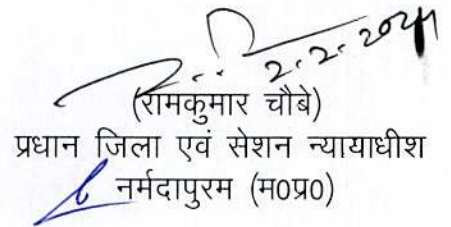 2.2.2024
(रामकुमार चौबे)
प्रधान जिला एवं सेशन न्यायाधीश
नर्मदापुरम (म०प्र०)